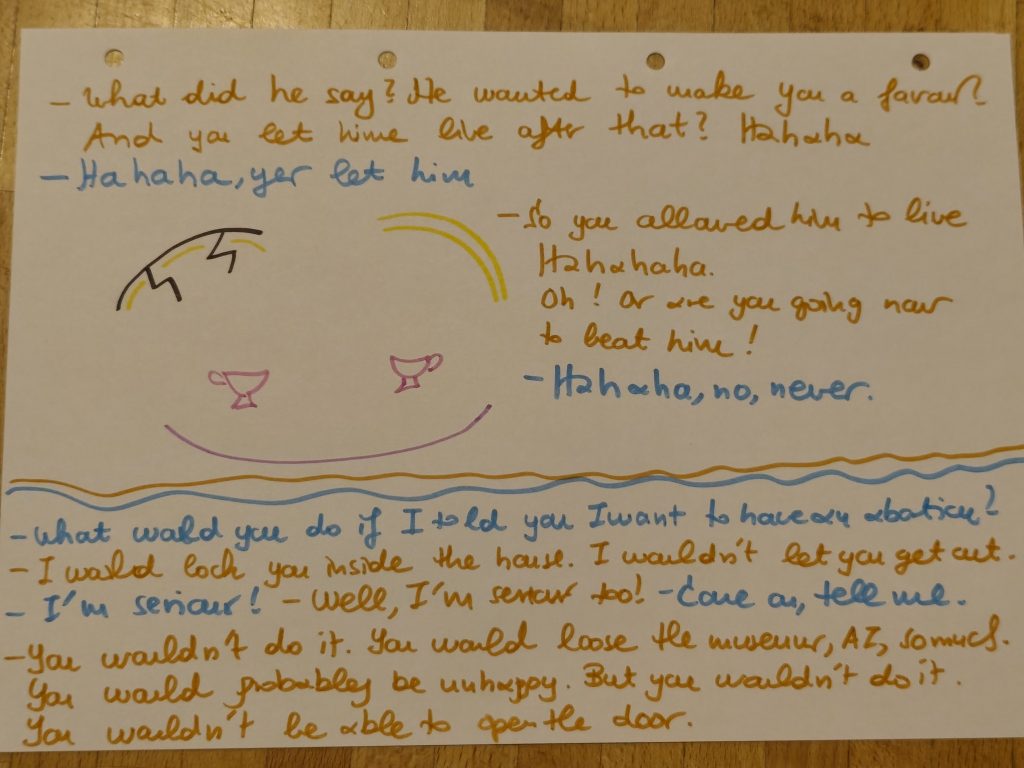 - What did he say? He wanted to make you a favour?
And you let hime live after that? Hahaha
- Hahaha, yes let him
- So you allowed him to live
Hahahaha.
Oh! Or are you going now
to beat him!
- Hahaha, no, never.
- What would you do if I told you I want to have an abotion?
- I would lock you inside the house. I wouldn't let you get out.
- I'm seriour! - Well, I'm seriour too! - Come on, tell me.
- You wouldn't do it. You would loose the museum, AI, so much.
You would probabley be unhappy. But you wouldn't do it.
You wouldn't be able to open the door.